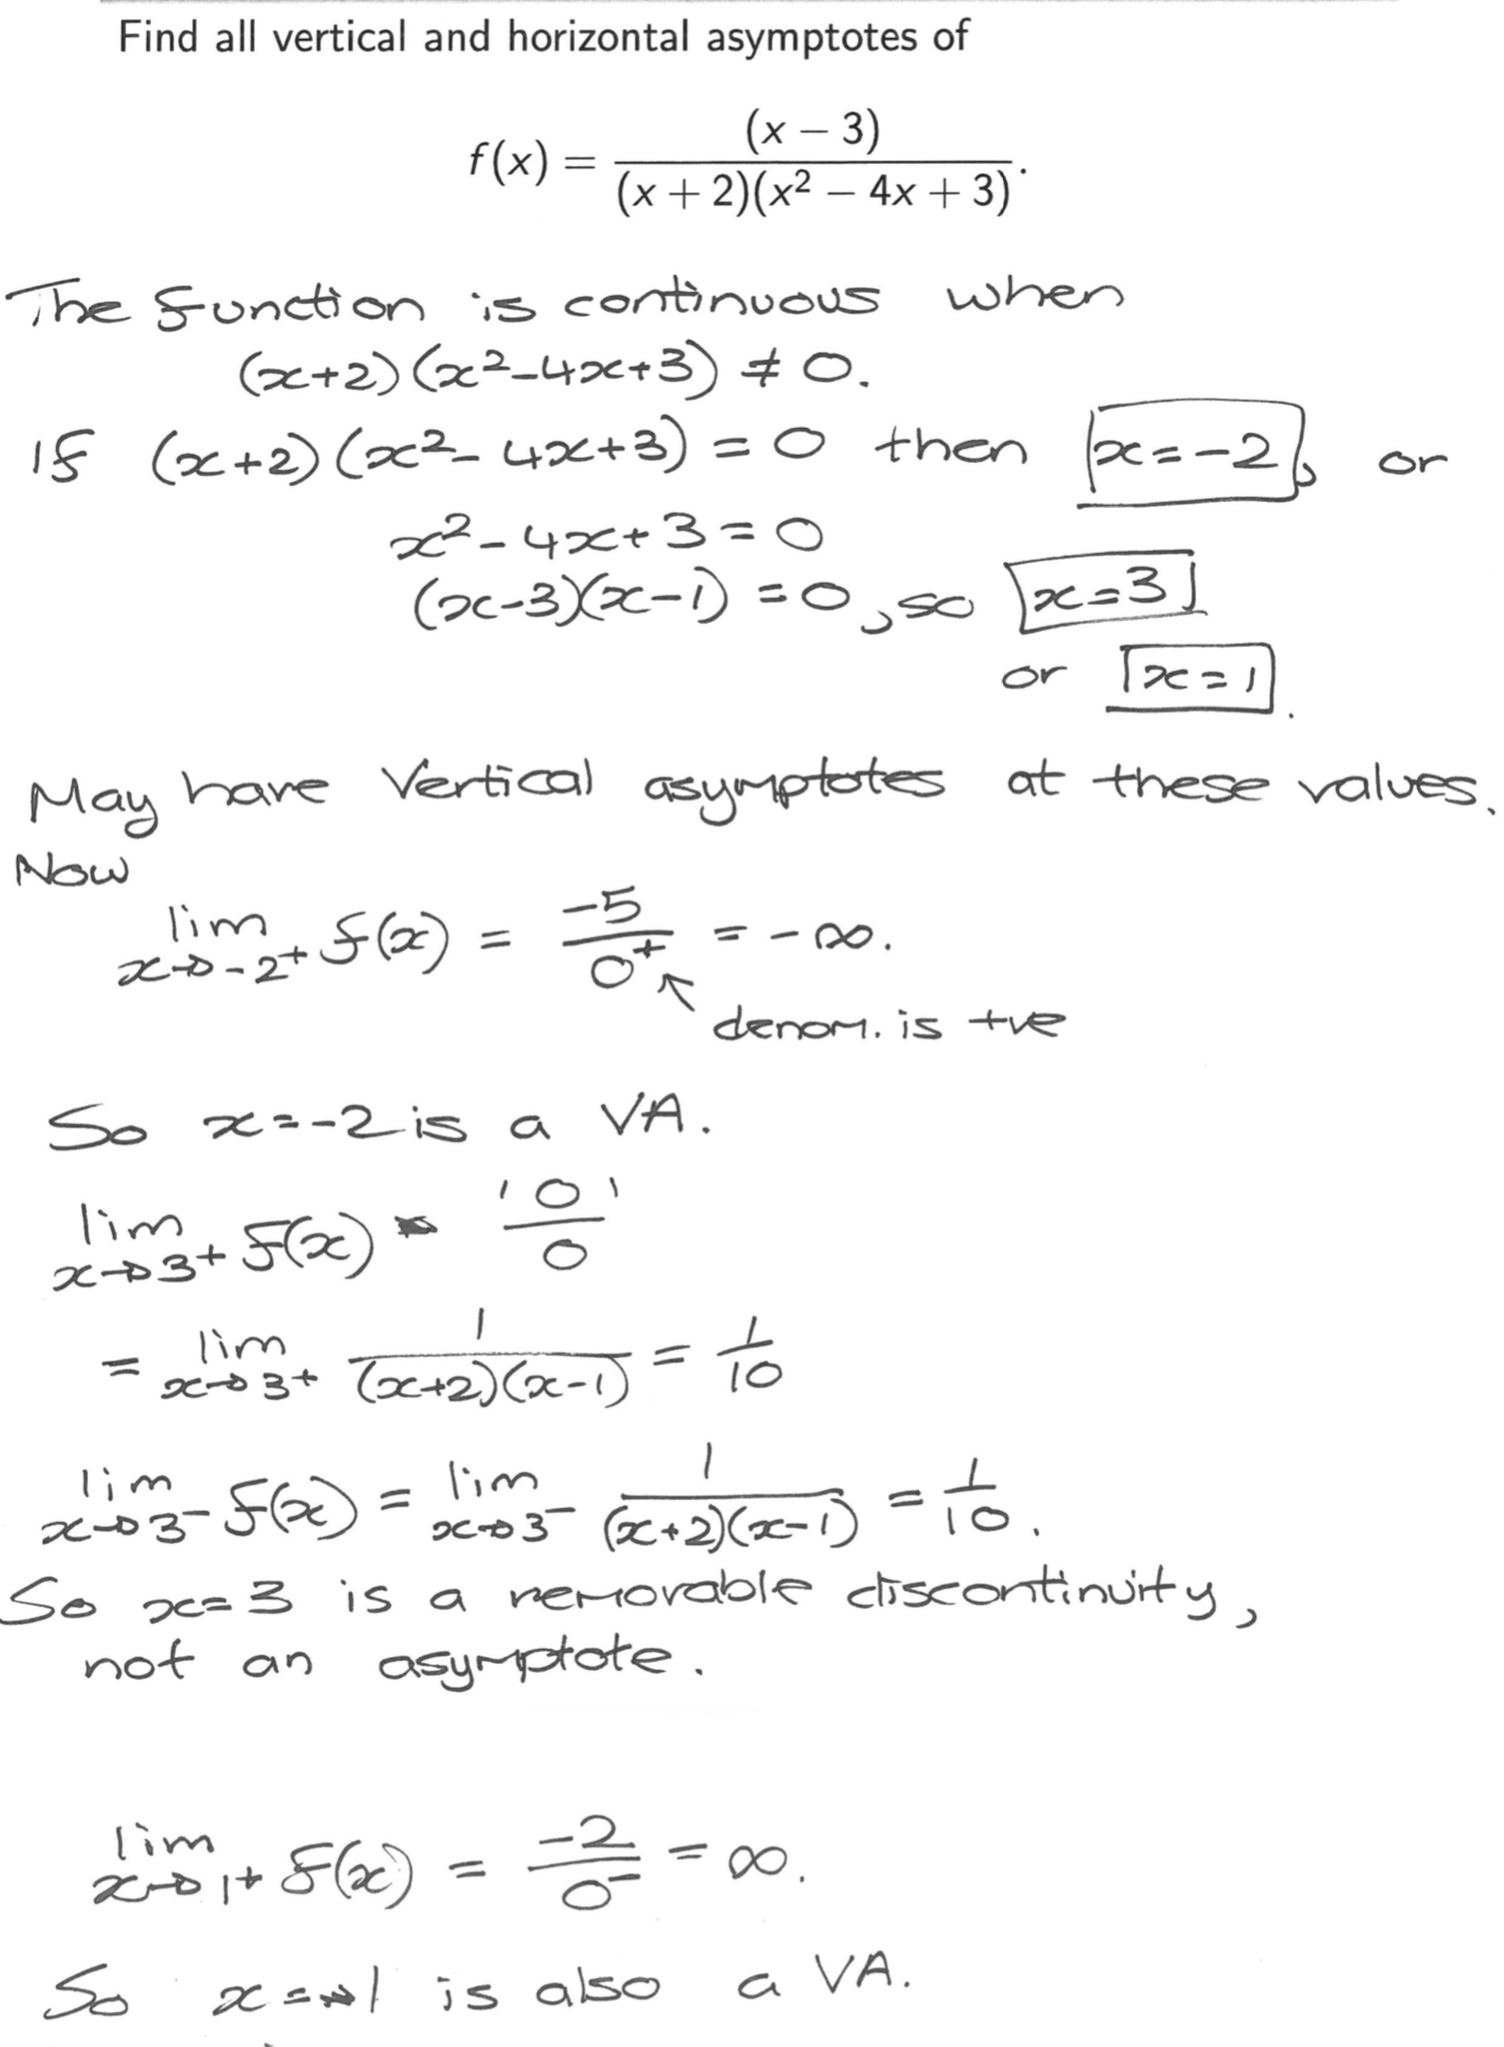 Find all vertical and horizontal asymptotes of
f(x) = (x − 3) / (x + 2)(x² − 4x + 3).
The function is continuous when
(x+2)(x²-4x+3) ≠ 0.
If (x+2)(x²-4x+3) = 0 then x=-2, or
x²-4x+3=0
(x-3)(x-1)=0, so x=3
or x=1.
May have vertical asymptotes at these values.
Now
lim x→-2⁺ f(x) = -5/0⁺ = -∞.
denom. is +ve
So x=-2 is a VA.
lim x→3⁺ f(x) '0/0'
= lim x→3⁺ 1/(x+2)(x-1) = 1/10
lim x→3⁻ f(x) = lim x→3⁻ 1/(x+2)(x-1) = 1/10.
So x=3 is a removable discontinuity,
not an asymptote.
lim x→1⁺ f(x) = -2/0⁻ = ∞.
So x=1 is also a VA.